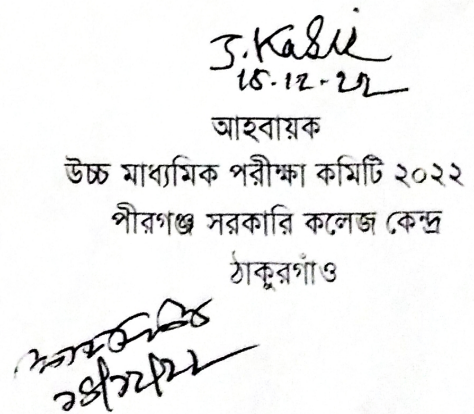 J. Kabir
15-12-22
আহবায়ক
উচ্চ মাধ্যমিক পরীক্ষা কমিটি ২০২২
পীরগঞ্জ সরকারি কলেজ কেন্দ্র
ঠাকুরগাঁও